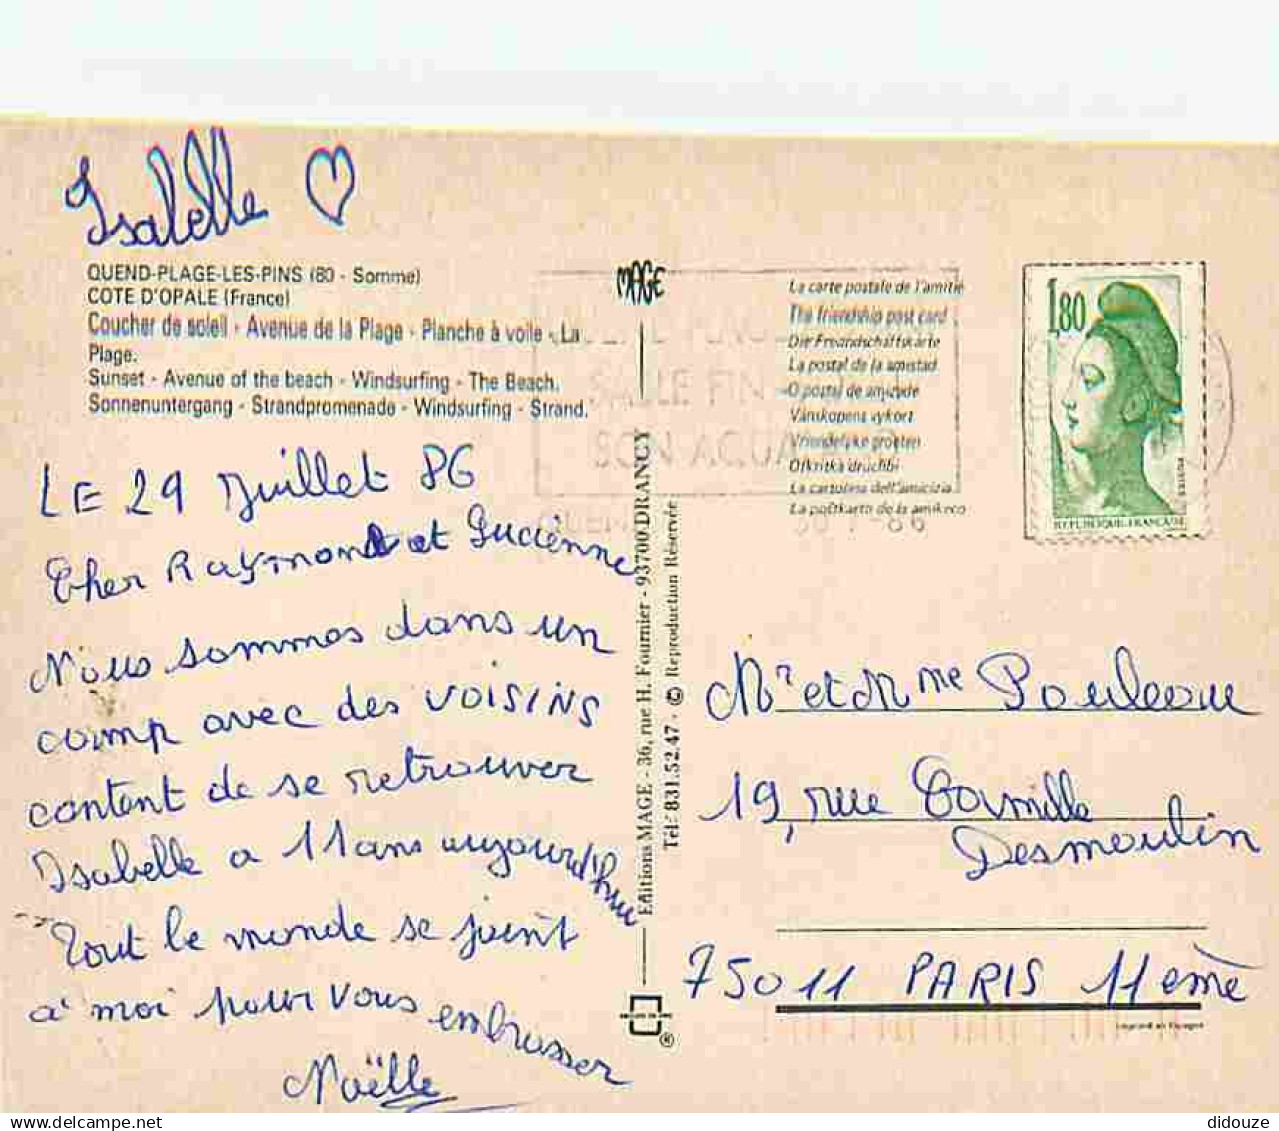 Isabelle ♡
QUEND-PLAGE-LES-PINS (80 - Somme)
COTE D'OPALE (France)
Coucher de soleil - Avenue de la Plage - Planche à voile - La
Plage.
Sunset - Avenue of the beach - Windsurfing - The Beach.
Sonnenuntergang - Strandpromenade - Windsurfing - Strand.
LE 29 Juillet 86
Cher Raymond et Lucienne
Nous sommes dans un
camp avec des VOISINS
content de se retrouver
Isabelle a 11 ans aujourd'hui
Tout le monde se joint
a' moi pour vous embrasser
Noëlle
MAGE
Editions MAGE - 36, rue H. Fournier - 93700 DRANCY
Tél. 831.52.47 - © Reproduction Réservée
®
La carte postale de l'amitié
The friendship post card
Die Freundschaftskarte
La postal de la amistad
O postal de amizade
Vänskapens vykort
Vriendelijke groeten
Otkritka druchbi
La cartolina dell'amicizia
La poŝtkarto de la amikeco
SON AQUA
30-7-86
1,80
REPUBLIQUE-FRANÇAISE
Mr et Mme Pouleau
19, rue Camille
Desmoulin
75011 PARIS 11ème
Imprimé en Espagne
didouze